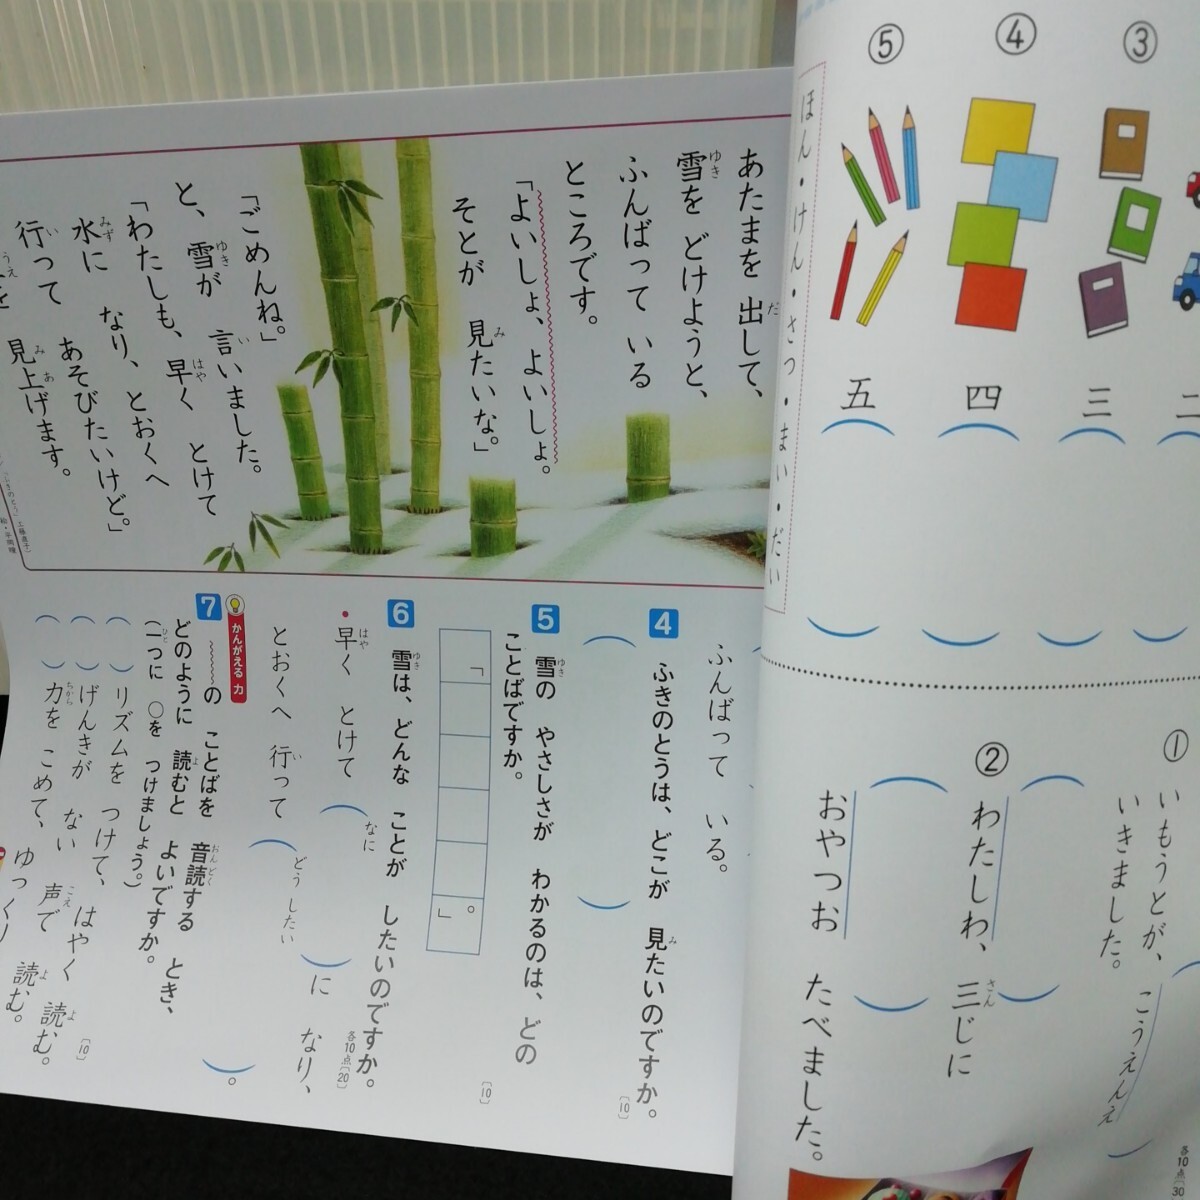 ③
④
⑤
二
三
四
五
ほん・けん・さつ・まい・だい
①
いもうとが、こうえんえ
いきました。
②
わたしわ、三じに
さん
おやつお たべました。
各10点〔30
あたまを 出して、
だ
雪を どけようと、
ゆき
ふんばって いる
ところです。
「よいしょ、よいしょ。
そとが 見たいな。」
み
「ごめんね。」
と、雪が 言いました。
ゆき
い
「わたしも、早く とけて
はや
水に なり、とおくへ
みず
行って あそびたいけど。」
い
を 見上げます。
うえ
み
あ
ふんばって いる。
4
ふきのとうは、どこが 見たいのですか。
み
〔10〕
5
雪の やさしさが わかるのは、どの
ゆき
ことばですか。
〔10〕
「
。」
6
雪は、どんな ことが したいのですか。
ゆき
各10点〔20〕
・早く とけて
はや
なに
に なり、
とおくへ 行って
い
どうしたい
。
かんがえる力
7
の ことばを 音読する とき、
おんどく
どのように 読むと よいですか。
よ
(一つに ○を つけましょう。)
ひと
〔10〕
( )リズムを つけて、はやく 読む。
よ
( )げんきが ない 声で 読む。
こえ
よ
( )力を こめて、ゆっくり
ちから